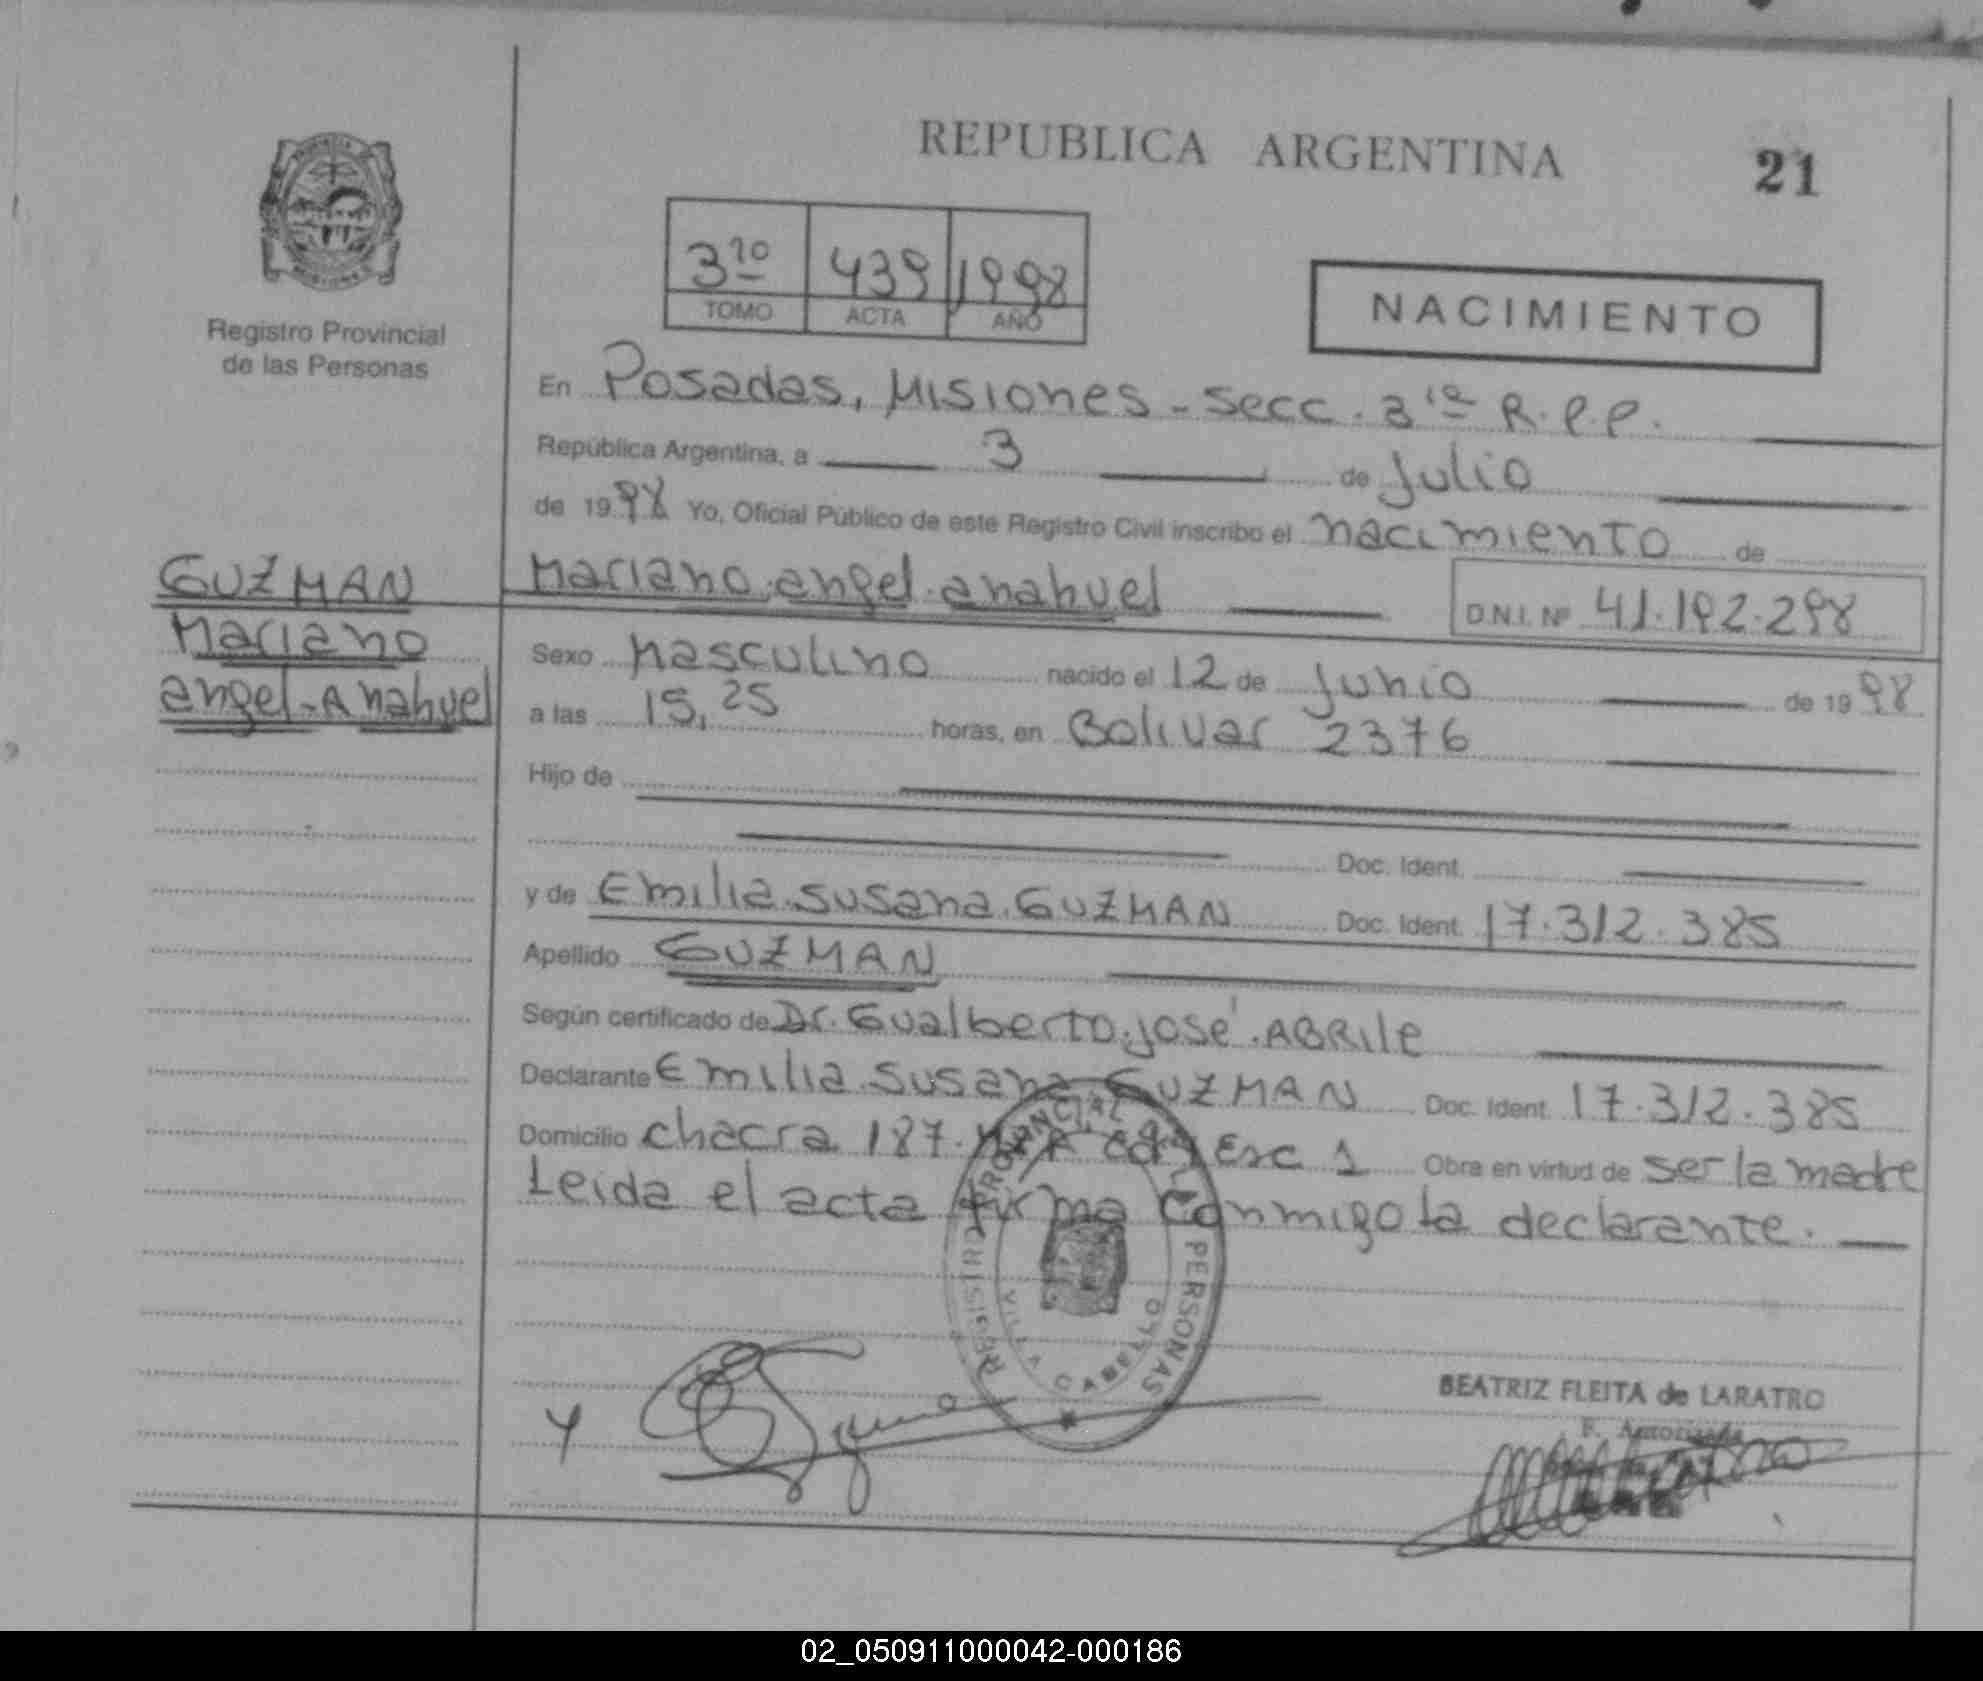 REPUBLICA ARGENTINA
21
3ro 439 1998
TOMO ACTA AÑO
NACIMIENTO
Registro Provincial
de las Personas
En Posadas, Misiones - Secc. 3ra R.P.P.
República Argentina, a 3 de Julio
de 1998 Yo, Oficial Público de este Registro Civil inscribo el nacimiento de
GUZMAN
Mariano
angel-Anahuel
Mariano angel anahuel
D.N.I. Nº 41.192.298
Sexo Masculino nacido el 12 de Junio de 1998
a las 15,25 horas, en Bolivar 2376
Hijo de
Doc. Ident.
y de Emilia Susana GUZMAN Doc. Ident. 17.312.385
Apellido GUZMAN
Según certificado de Dr. Gualberto José ABRILE
Declarante Emilia Susana GUZMAN Doc. Ident. 17.312.385
Domicilio chacra 187 Esc 1 Obra en virtud de ser la madre
Leida el acta firma conmigo la declarante.
REGISTRO PROVINCIAL PERSONAS
VILLA CABELLO
BEATRIZ FLEITA de LARATRO
F. Autorizada
02_050911000042-000186